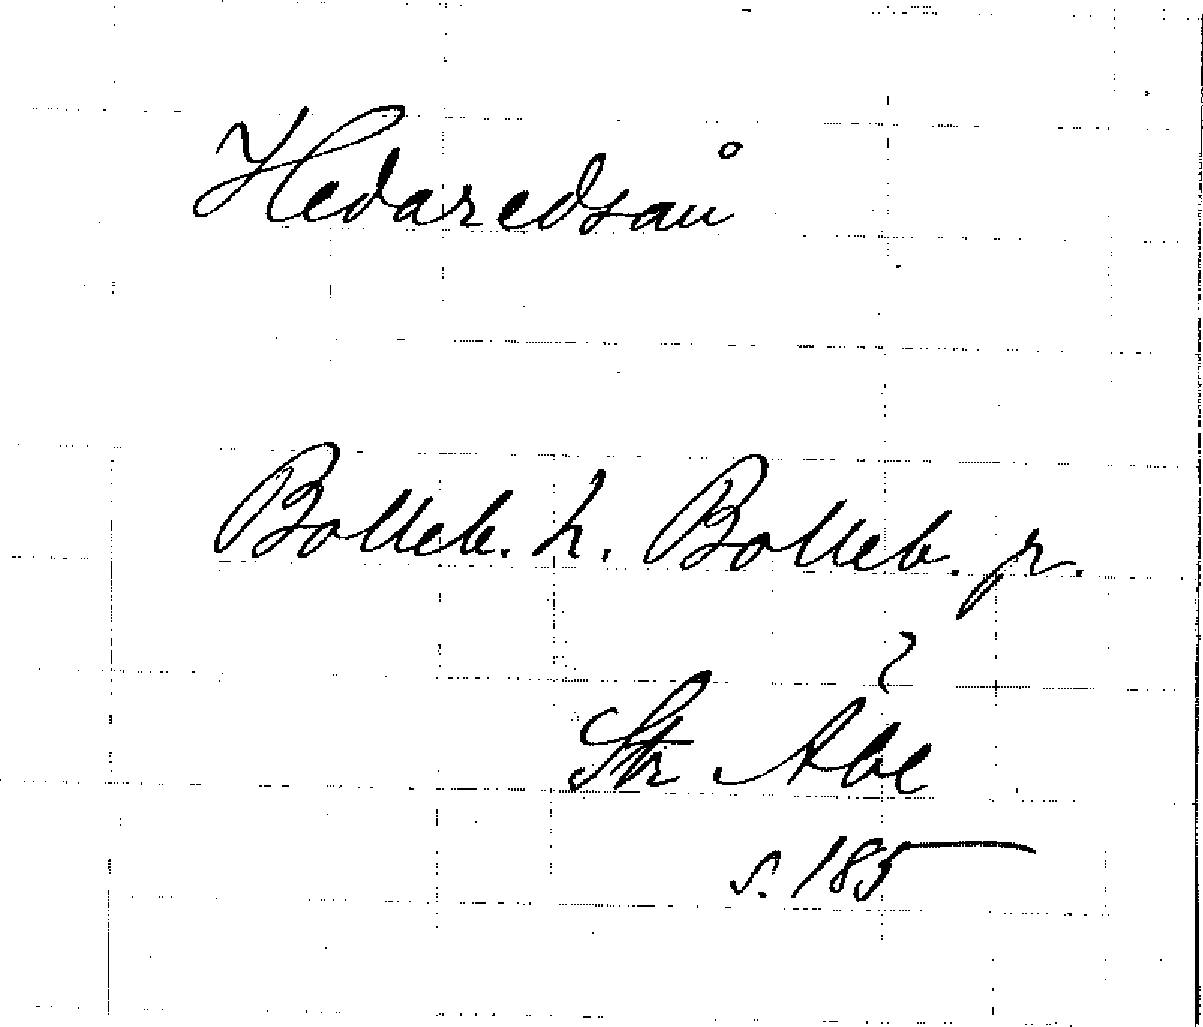 Hedaredsån
Bolleb. h. Bolleb. sn.
Str Abe
s. 185